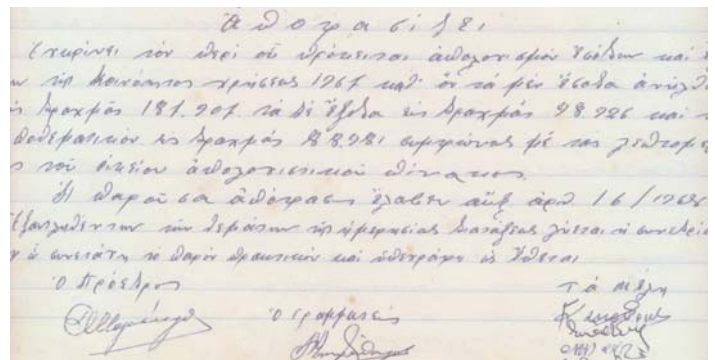 ἀποφασίζει
Ἐγκρίνει τόν περί οὗ πρόκειται ἀπολογισμόν ἐσόδων καί
τῆς Κοινότητος χρήσεως 1967 καθ' ὅν τά μέν ἔσοδα ἀνῆλθ
Δραχμάς 187.907 τά δέ ἔξοδα εἰς Δραχμάς 98.926 καί τ
ποθεματικόν εἰς Δραχμάς 88.981 συμφώνως μέ τάς λεπτομε
τοῦ οἰκείου ἀπολογιστικοῦ πίνακος.
Ἡ παροῦσα ἀπόφασις ἔλαβεν αὔξ. ἀριθ 16/1968
Ἐξαντληθέντων τῶν θεμάτων τῆς ἡμερησίας διατάξεως λύεται ἡ συνεδρία
συνετάγη τό παρόν πρακτικόν καί ὑπεγράφη ὡς ἕπεται
Ὁ Πρόεδρος
Ὁ Γραμματεύς
Τά μέλη